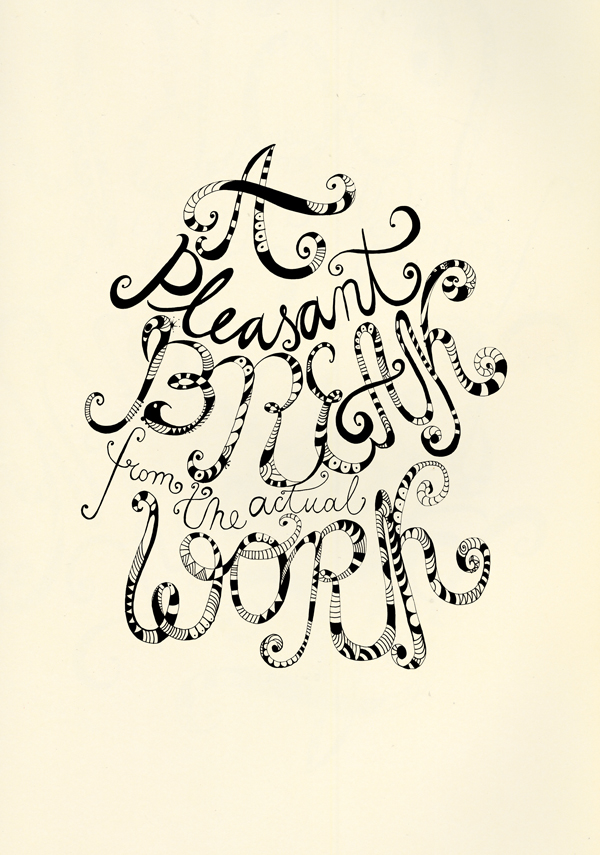 A
Pleasant
BREAK
from the actual
WORK